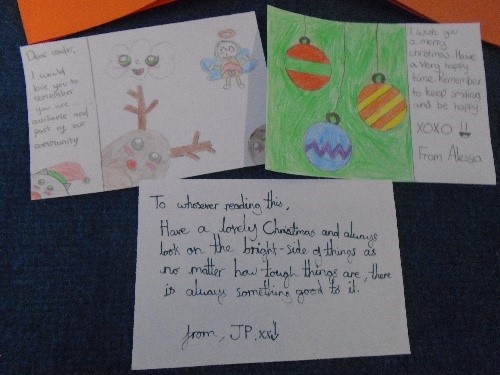 Dear reader,
I would
love you to
remember
you are
available and
part of our
community
I wish you
a merry
christmas. Have
a very happy
time. Remember
to keep smiling
and be happy.
XOXO
From Alessia
To whoever reading this,
Have a lovely Christmas and always
look on the bright-side of things as
no matter how tough things are, there
is always something good to it.
from, JP.xx